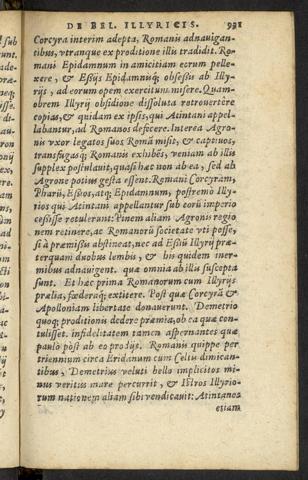 DE BEL. ILLYRICIS. 991
Corcyra interim adepta, Romanis adnauigan-
tibus, vtranque ex proditione illi tradidit. Ro-
mani Epidamnum in amicitiam ecrum pelle-
xere, & Essiįs Epidamniuq; obsessis ab Illy-
rijs, ad eorum opem exercitum misere. Quam-
obrem Illyrij obsidione dissoluta retrouertere
copias, & quidam ex ipsis, qui Atintani appel-
labantur, ad Romanos defecere. Interea Agro-
nis vxor legatos suos Romā misit, & captiuos,
transfugasq; Romanis exhibēs, veniam ab illis
supplex postulauit, quasi hæc non ab ea, sed ab
Agrone potius gesta essent. Romani Corcyram,
Pharū, Essos, atq; Epidamnum, postremò Illy-
rios qui Atintani appellantur sub eorū imperio
cessisse retulerunt. Pineum aliam Agronis regio
nem retinere, ac Romanorū societate vti posse,
si à præmissis abstineat, nec ad Essiū Illyrij præ-
terquam duobus lembis, & his quidem iner-
mibus adnauigent. quæ omnia ab illis suscepta
sunt. Et hæc prima Romanorum cum Illyrijs
prælia, fœderaq; extitere. Post quæ Corcyrā &
Apolloniam libertate donauerunt. Demetrio
quoq; proditionis dedere præmia, ob ea quæ con-
tulisset. infidelitatem tamen aspernantes quæ
paulò pòst ab eo prodijt. Romanis quippe per
triennium circa Eridanum cum Celtis dimican-
tibus, Demetrius veluti bello implicitos mi-
nus veritus mare percurrit, & Istros Illyrio-
rum nationem aliam sibi vendicauit: Atintanos
etiam